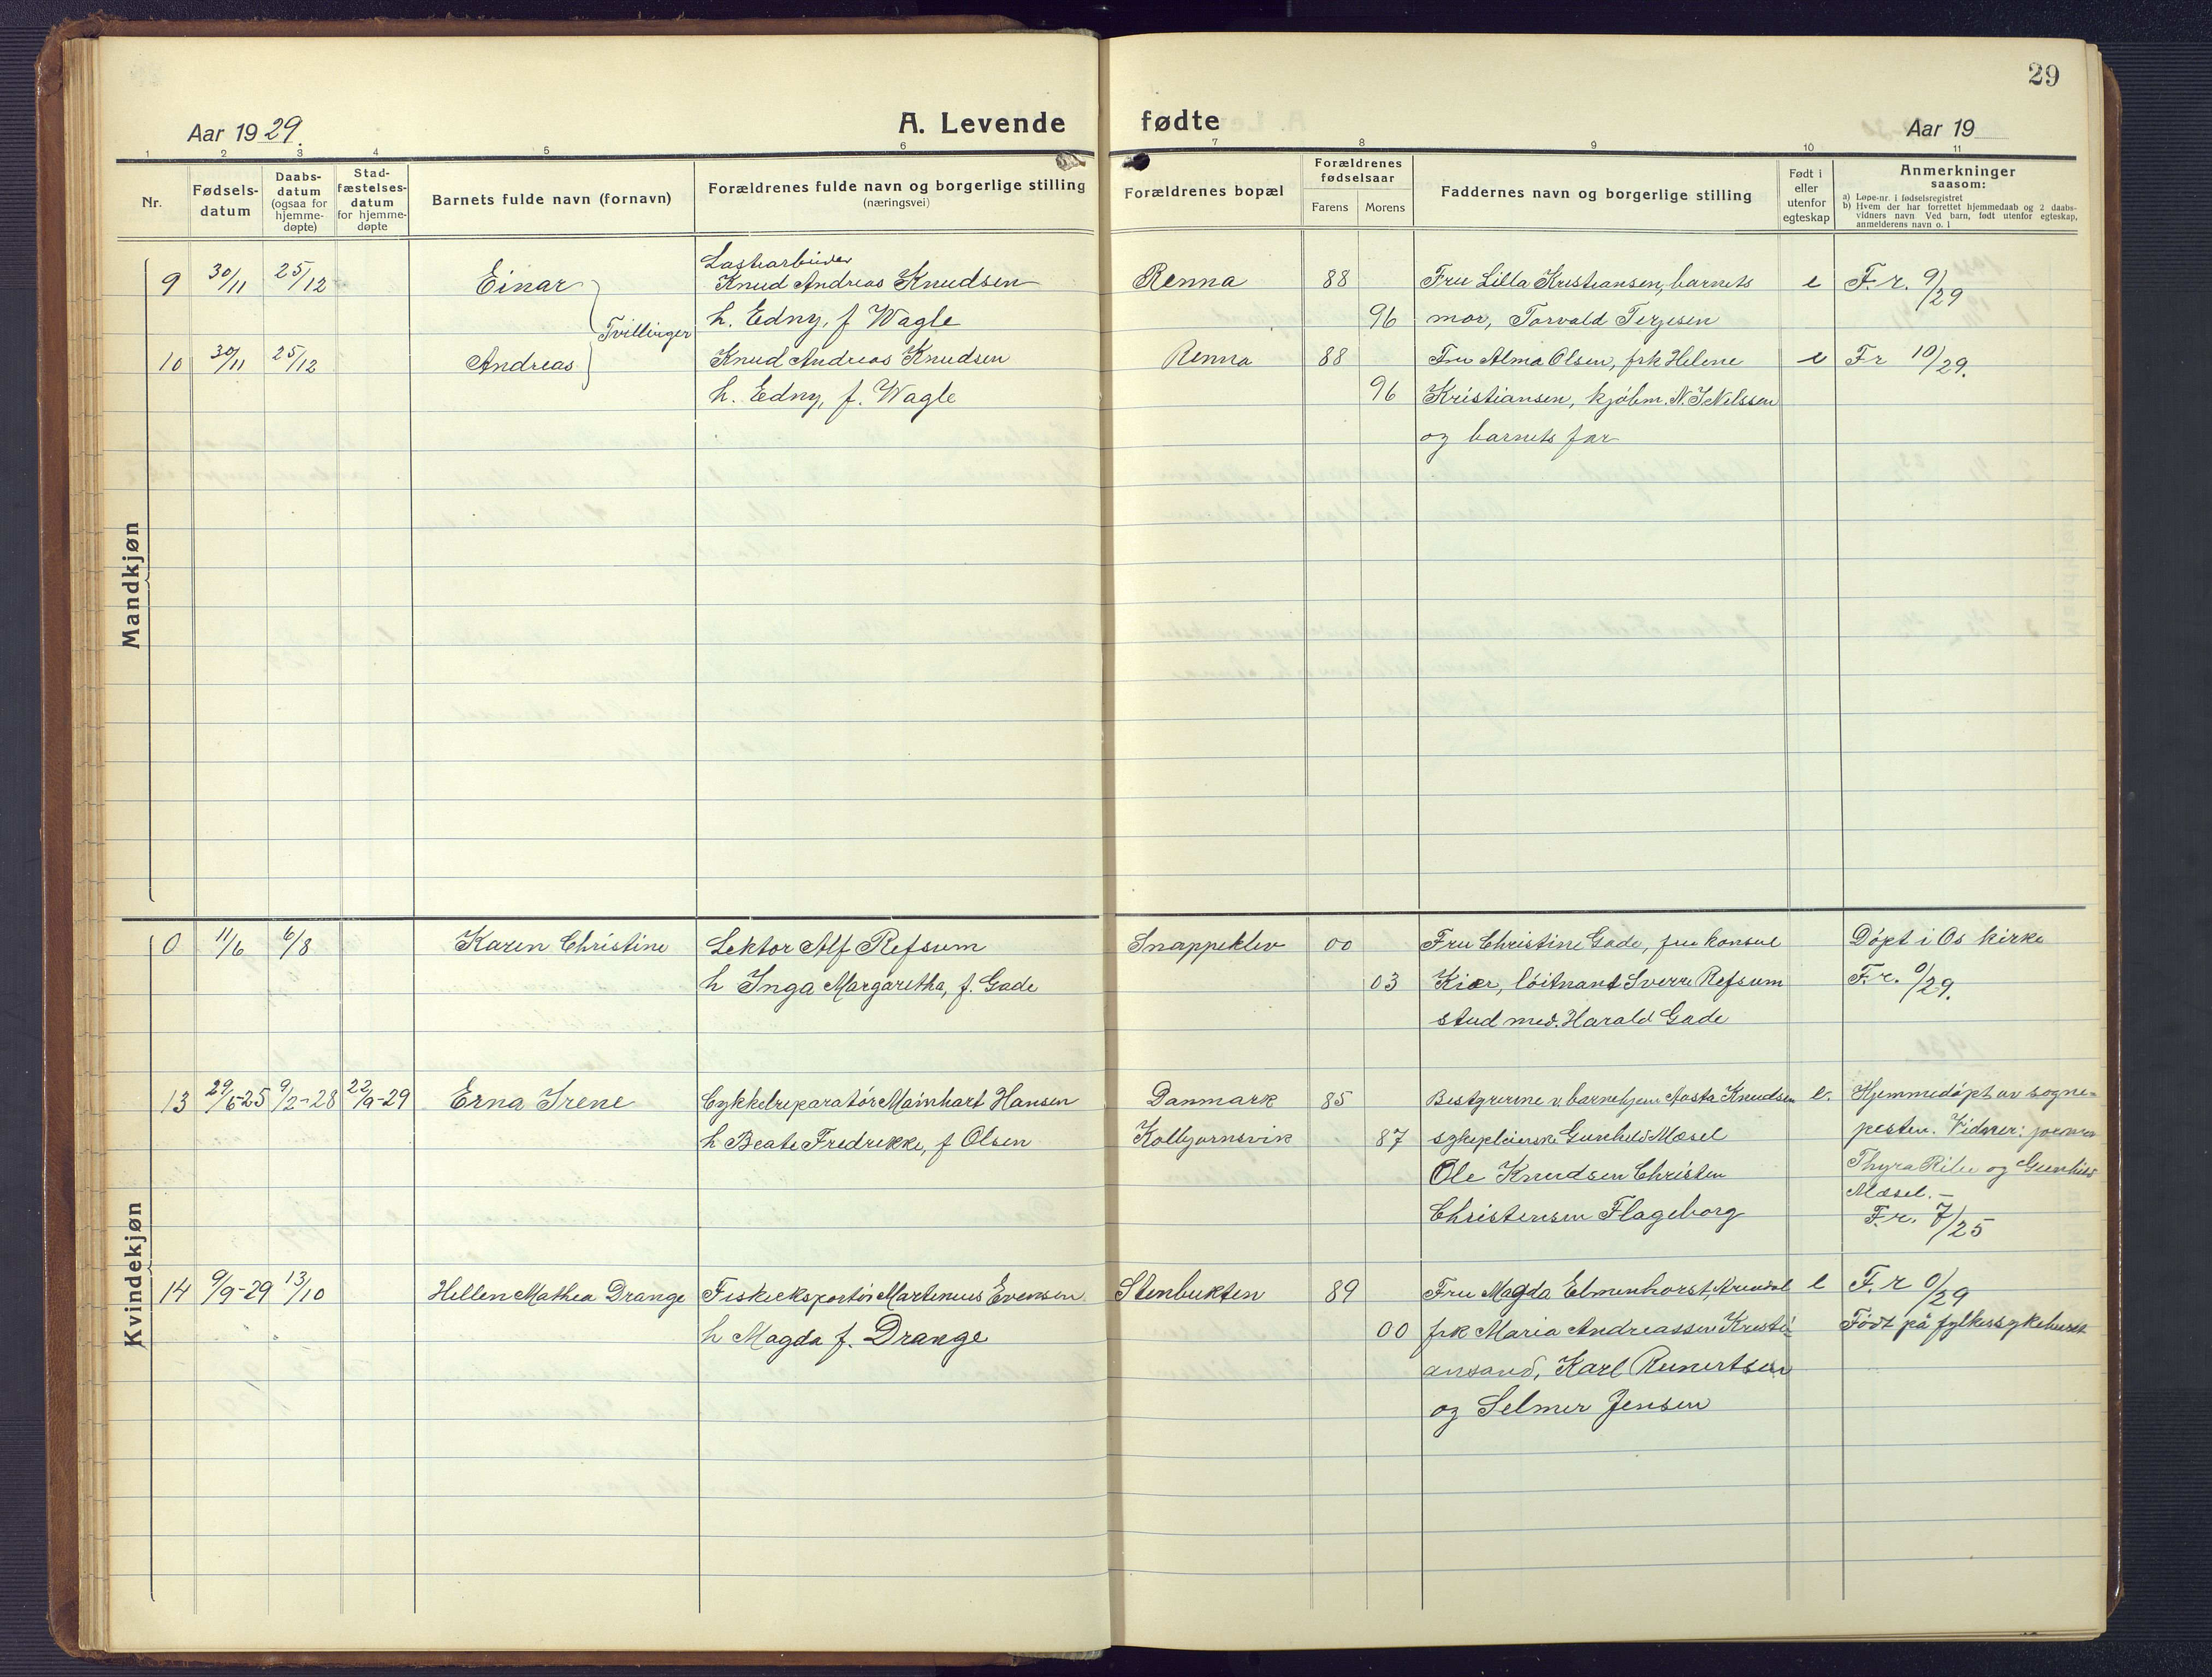 29
Aar 1929.
A. Levende fødte
Aar 19
1 2 3 4 5 6 7 8 9 10 11
Nr.
Fødsels-
datum
Daabs-
datum
(ogsaa for
hjemme-
døpte)
Stad-
fæstelses-
datum
for hjemme-
døpte
Barnets fulde navn (fornavn)
Forældrenes fulde navn og borgerlige stilling
(næringsvei)
Forældrenes bopæl
Forældrenes
fødselsaar
Farens Morens
Faddernes navn og borgerlige stilling
Født i
eller
utenfor
egteskap
Anmerkninger
saasom:
a) Løpe-nr. i fødselsregistret
b) Hvem der har forrettet hjemmedaab og 2 daabs-
vidners navn Ved barn, født utenfor egteskap,
anmelderens navn o. l
Mandkjøn
Lastearbeider
9 30/11 25/12 Einar Knud Andreas Knudsen Renna 88 Fru Lilla Kristiansen, barnets e F. r. 9/29
h. Edny, f Wagle 96 mor, Torvald Terjesen
Tvillinger
10 30/11 25/12 Andreas Knud Andreas Knudsen Renna 88 Fru Alma Olsen, frk Helene e F r 10/29.
h. Edny, f. Wagle 96 Kristiansen, kjøbm. N. J Nilssen
og barnets far
Kvindekjøn
0 11/6 6/8 Karen Christine Lektor Alf Refsum Snappeklev 00 Fru Christine Gade, fru konsul Døpt i Os kirke
h Inga Margaretha, f. Gade 03 Kiær, løitnant Sverre Refsum F. r. 0/29.
stud med. Harald Gade
13 29/5-25 9/2-28 22/9-29 Erna Irene Cykkelreparatør Mainhart Hansen Danmark 85 Bestyrerine v. barnehjem Aasta Knudsen e. Hjemmedøpt av sogne-
h Beate Fredrikke, f Olsen Kolbjornsvik 87 sykepleierske Gunhild Mæsel pesten. Vidner:
Ole Knudsen Christen Thyra Riber og Gunhild
Mæsel. —
Christensen Flageborg F. r. 7/25
14 9/9-29 13/10 Hellen Mathea Drange Fiskeeksportør Martinius Evensen Stenbukten 89 Fru Magda Elmenhorst, Arendal e F. r 0/29
h Magda f. Drange 00 frk Maria Andreassen Kristi- Født på fylkessykehuset
ansand, Karl Runertsen
og Selmer Jensen